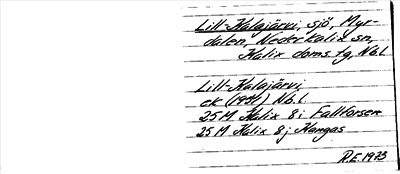 Lill-Kalajärvi, sjö, Myr-
dalen, Nederkalix sn,
Kalix doms. tg, Nb.l
Lill-Kalajärvi,
ek (1951) Nb.l
25M Kalix 8i Fallforsen
25M Kalix 8j Kangas
R.E. 1973